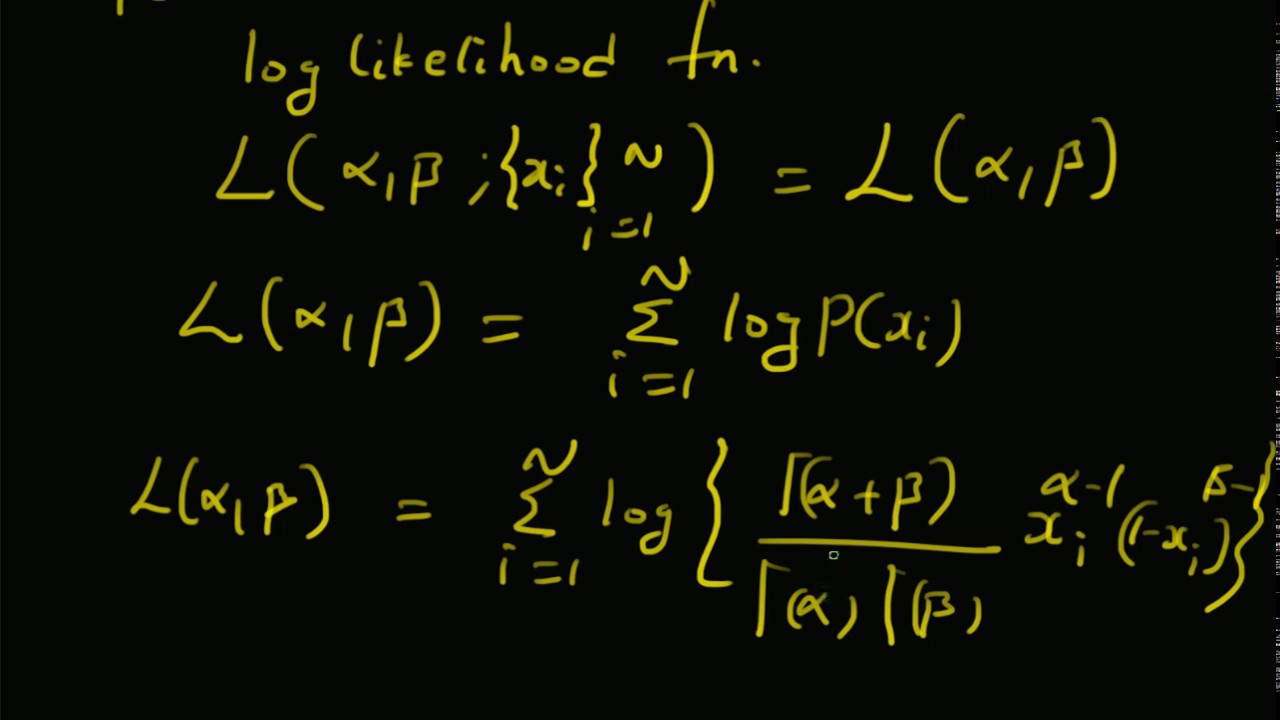 log likelihood fn.
L(α,β;{xᵢ}ᴺᵢ₌₁) = L(α,β)
L(α,β) = Σᴺᵢ₌₁ log P(xᵢ)
L(α,β) = Σᴺᵢ₌₁ log { Γ(α+β) / Γ(α) Γ(β) xᵢ^(α-1) (1-xᵢ)^(β-) }